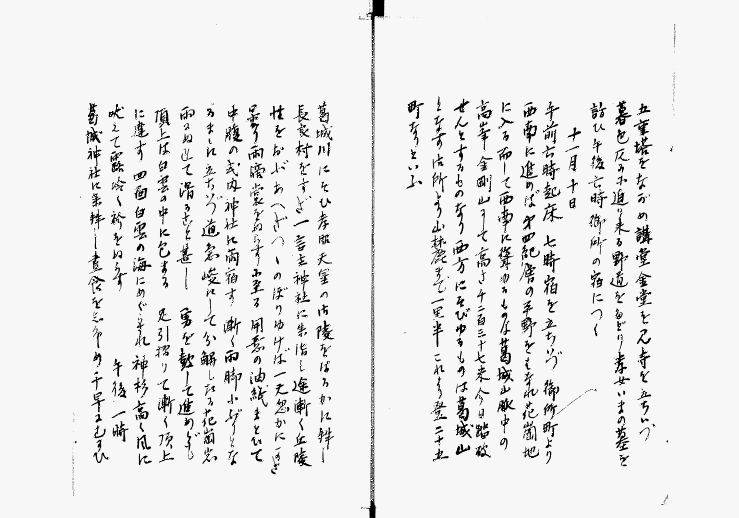 五重塔をながめ講堂金堂を見寺を立ちいづ
暮色仄かに迫り来る野道をたどり孝女いまの墓を
訪ひ午後七時御所の宿につく
十一月十日
午前六時起床 七時宿を立ちいづ 御所町より
西南に進めば第四紀層の平野をはなれ花崗地
に入る而して西南に聳ゆるものは葛城山脈中の
高峯金剛山にて高さ千二百三十七米今日踏破
せんとするものなり西方にそびゆるものは葛城山
となす御所より山麓まで一里半これより登二十五
町なりといふ
葛城川にそひ孝昭天皇の御陵をはるかに拝し
長良村をすぎ一言主神社に参詣し途漸く丘陵
性をおび あへぎつゝのぼりゆけば一天忽かに
曇り雨 裳をぬらすに至る 用意の油紙まとひて
中腹の式内神社に雨宿す 漸く雨脚小ぶりとな
るまゝに立ちいづ 道急峻にして分解したる花崗岩
雨にぬれて滑ること甚し 勇を鼓して進めども
頂上は白雲の中に包まる 足引摺りて漸く頂上
に達す 四面白雲の海にめぐらされ 神杉高く風に
吠えて露冷く衫をぬらす 午後一時
葛城神社に参拝し昼食をしたゝめ千早にむかひ